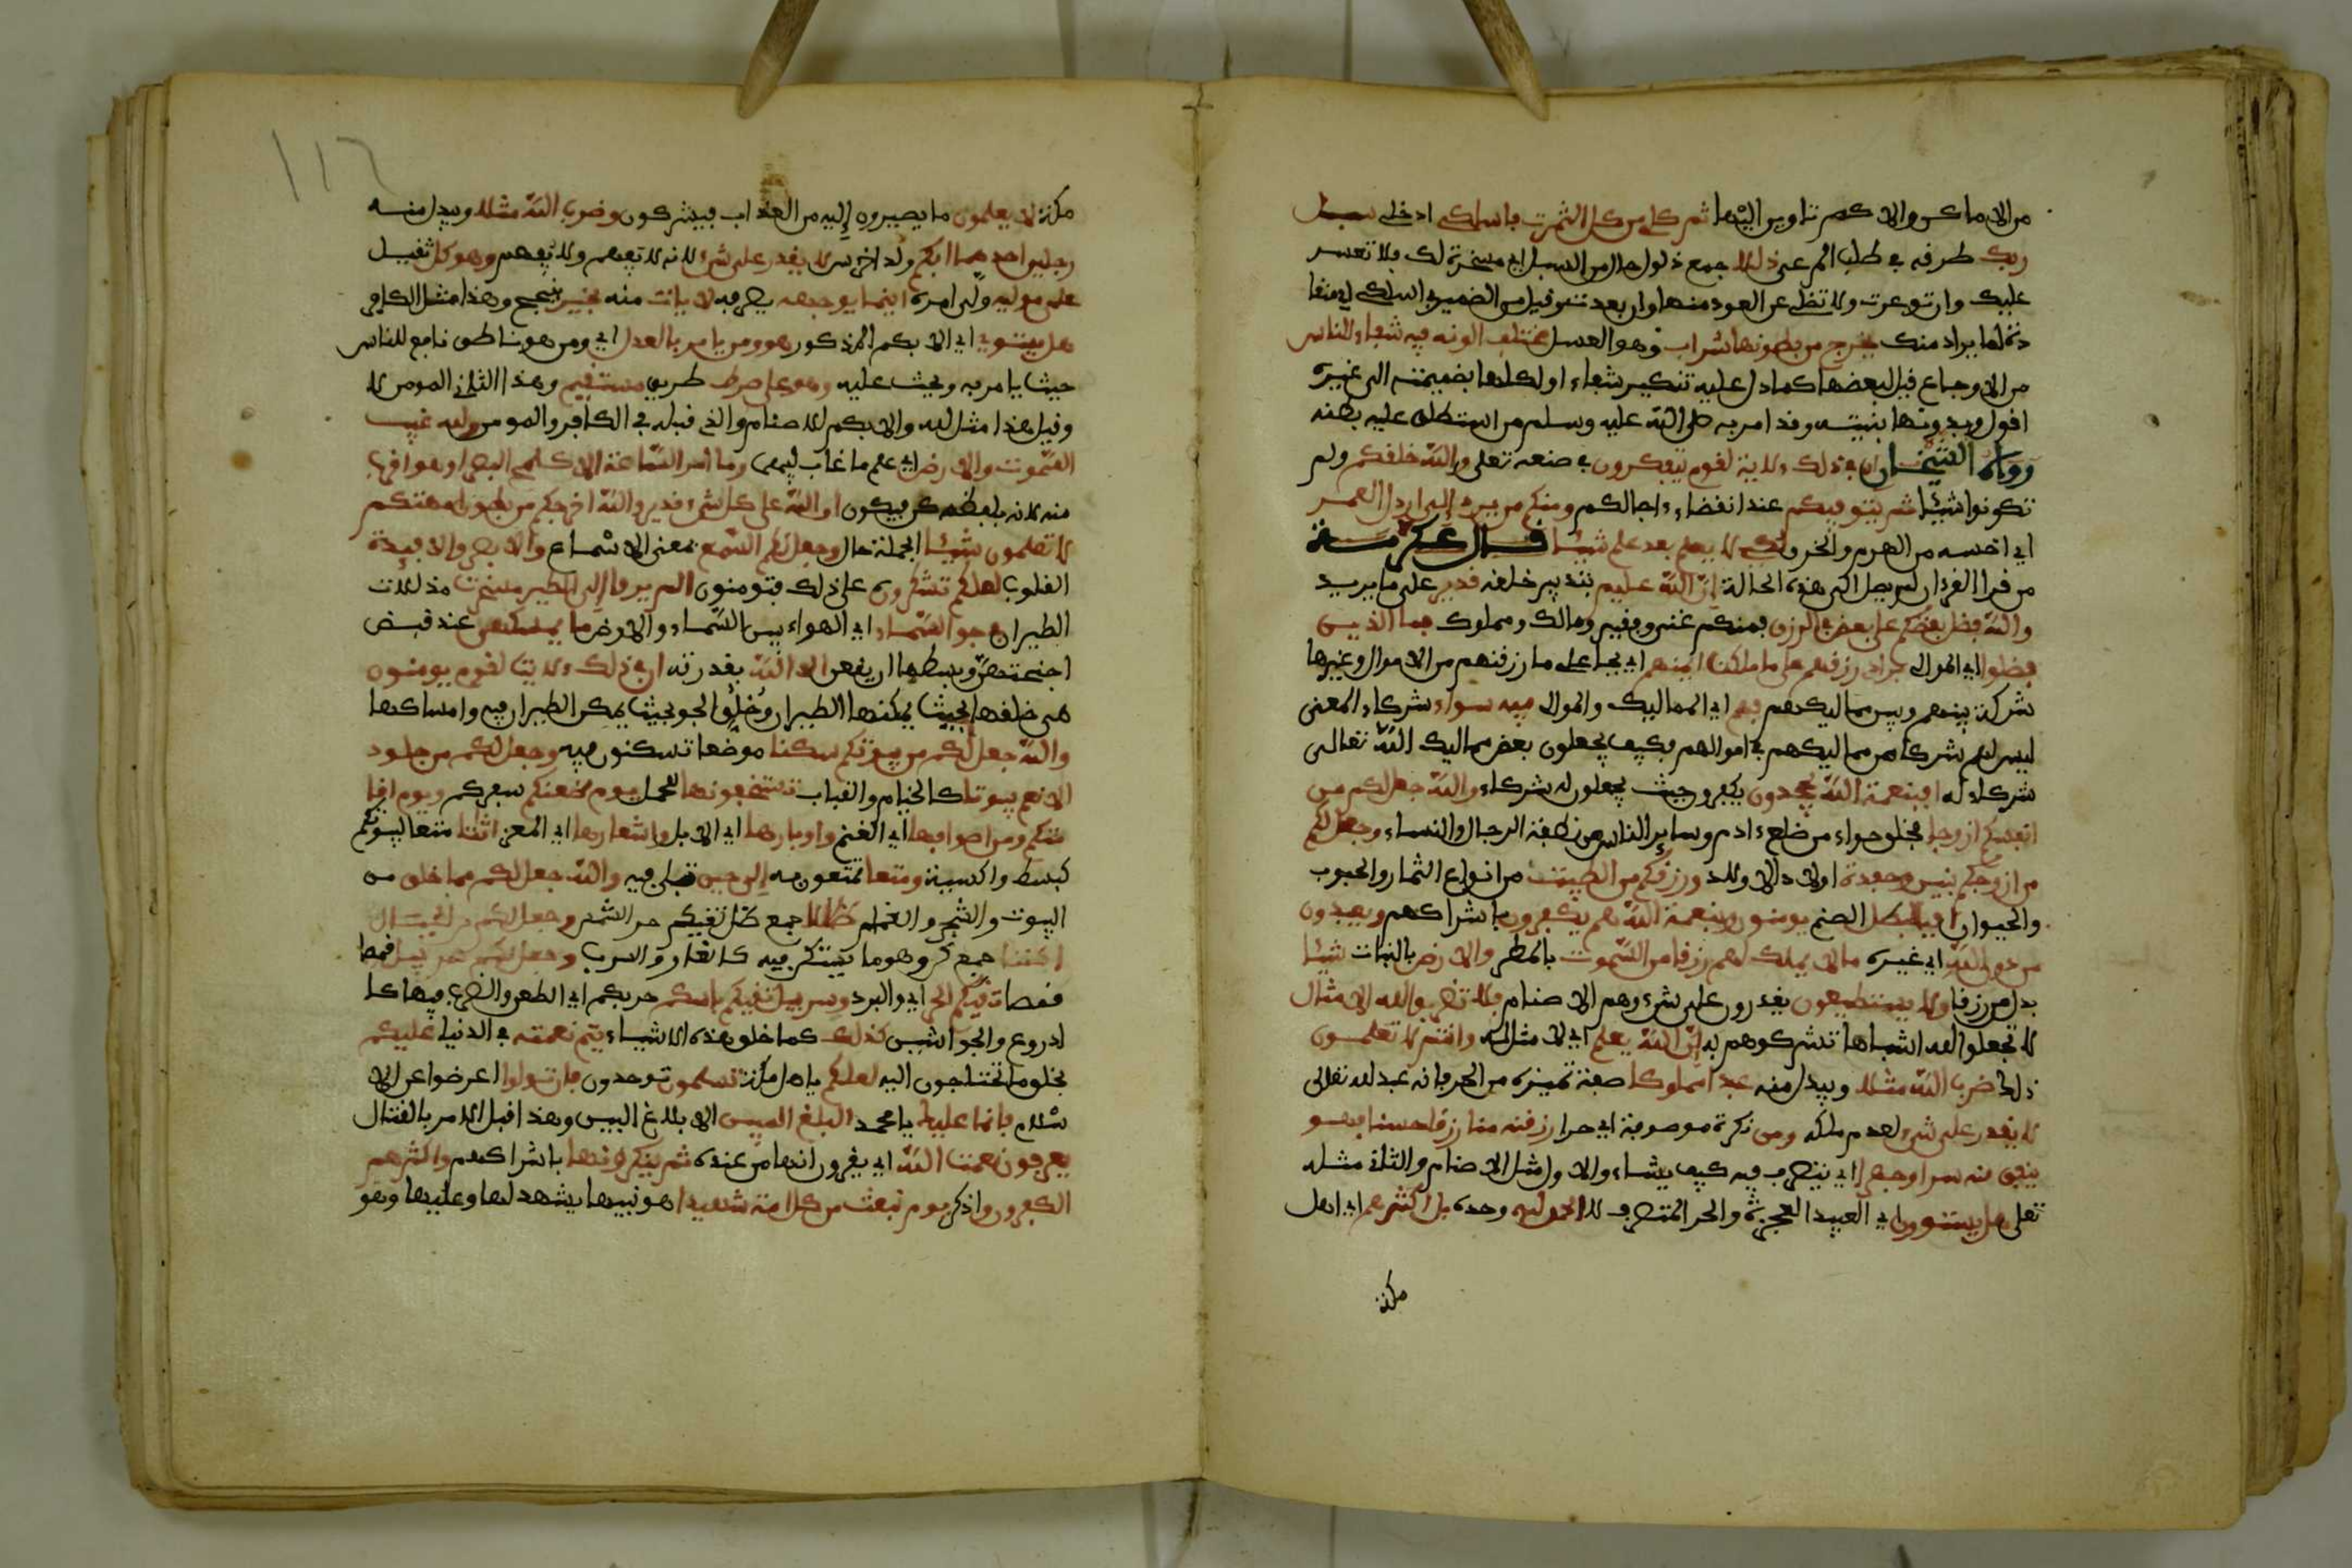 من الاماكن والالم تاوين اليها ثم كلي من كل الثمرت فاسلكي ادخلي سبل
ربك طرفه في طلب المرعى ذللا جمع ذلول حال من السبل اي مسخرة لك فلا تعسر
عليك وان توعرت ولا تضلي عن العود منها وان بعدت وفيل من الضمير في اسلكي اي منفا
دة لما يراد منك يخرج من بطونها شراب وهو العسل مختلف الونه فيه شفاء للناس
من الاوجاع فيل لبعضها كما دل عليه تنكير شفاء او لكلها بضميمته الى غيره
افول وبدونها بنيته وفد امر به صلى الله عليه وسلم من استطلق عليه بطنه
رواه الشيخان ان في ذلك ءلاية لفوم يتفكرون في صنعه تعلى والله خلفكم ولم
تكونوا شيئا ثم يتوفيكم عند انفضاء ءاجالكم ومنكم من يرد الى ارذل العمر
اي اخسه من الهرم والخرف لكي لا يعلم بعد علم شيئا فال عكرمة
من فرا الفرءان لم يصل الى هذه الحالة ان الله عليم بتدبير خلفه فدير على ما يريد
والله فضل بعضكم على بعض في الرزق فمنكم غني وففير ومالك ومملوك فما الذين
فضلوا اي الموالي برادي رزفهم على ما ملكت ايمنهم اي بجاعلي ما رزفنهم من الاموال وغيرها
شركة بينهم وبين مماليكهم فهم اي المماليك والموالي فيه سواء شركاء المعنى
ليس لهم شركاء من مماليكهم في اموالهم فكيف يجعلون بعض مماليك الله تعالى
شركاء له افبنعمة الله يجحدون يكفرون حيث يجعلون له شركاء والله جعل لكم من
انفسكم ازوجا فخلق حواء من ضلع ءادم وساير الناس من نطفة الرجال والنساء وجعل لكم
من ازوجكم بنين وحفدة اولاد الاولاد ورزفكم من الطيبت من انواع الثمار والحبوب
والحيوان افبالبطل الصنم يومنون وبنعمت الله هم يكفرون باشراكهم ويعبدون
من دون الله اي غيره ما لا يملك لهم رزفا من السموت بالمطر والارض بالنبات شيئا
بدل من رزفا ولا يستطيعون يفدرون على شيء وهم الاصنام فلا تضربوا لله الامثال
لا تجعلوا لله اشباها تشركوهم به ان الله يعلم اي لا مثل له وانتم لا تعلمون
ذلك ضرب الله مثلا ويبدل منه عبدا مملوكا صفة تميزه من الحر فانه عبد لله تعالى
لا يفدر على شيء لعدم ملكه ومن نكرة موصوفة اي حرا رزفنه منا رزفا حسنا فهو
ينفق منه سرا وجهرا اي يتصرف فيه كيف يشاء والاول مثل الاصنام والثاني مثله
تعلى هل يستوون اي العبيد العجزة والحر المتصرف لا الحمد لله وحده بل اكثرهم اي اهل
مكة
مكة لا يعلمون ما يصيرون إليه من العذاب فيشركون وضرب الله مثلا ويبدل منه
رجلين احدهما ابكم ولد اخرس لا يفدر على شيء لانه لا يفهم ولا يفهم وهو كل ثفيل
على موليه ولي امره اينما يوجهه يصرفه لا يات منه بخير بنجح وهذا مثل الكافر
هل يستوي اي الابكم المذكور هو ومن يامر بالعدل اي ومن هو ناطق نافع للناس
حيث يامر به ويحث عليه وهو على صرط طريق مستفيم وهذا الثاني المومن لا
وفيل هذا مثل لله والابكم للاصنام والذي فبله في الكافر والمومن ولله غيب
السموت والارض اي علم ما غاب فيهما وما امر الساعة الا كلمح البصر او هو افرب
منه لانه بلفظ كن فيكون ان الله على كل شيء فدير والله اخرجكم من بطون امهتكم
لا تعلمون شيئا الجملة حال وجعل لكم السمع بمعنى الاسماع والابصر والافيدة
الفلوب لعلكم تشكرون على ذلك فتومنون الم يروا الى الطير مسخرت مذللات
للطيران في جو السماء اي الهواء بين السماء والارض ما يمسكهن عند فبض
اجنحتهن وبسطها ان يفعن الا الله بفدرته ان في ذلك ءلايت لفوم يومنون
هي خلفها بحيث يمكنها الطيران وخلق الجو بحيث يمكن الطيران فيه وامساكها
والله جعل لكم من بيوتكم سكنا موضعا تسكنون فيه وجعل لكم من جلود
الانعم بيوتا كالخيام والفباب تستخفونها للحمل يوم ظعنكم سفركم ويوم افا
متكم ومن اصوافها اي الغنم واوبارها اي الابل واشعارها اي المعز اثثا متعا لبيوتكم
كبسط واكسية ومتعا تتمتعون به إلى حين تبلى فيه والله جعل لكم مما خلق من
البيوت والشجر والغمام ظللا جمع ظل تفيكم حر الشمس وجعل لكم من الجبال
اكننا جمع كن وهو ما يستكن فيه كالغار والسرب وجعل لكم سربيل فمصا
تفيكم الحر اي والبرد وسربيل تفيكم باسكم حربكم اي الطعن والضرب فيها كا
لدروع والجواشن كذلك كما خلق هذه الاشياء يتم نعمته في الدنيا عليكم
بخلق ما تحتاجون اليه لعلكم يا اهل مكة تسلمون توحدون فان تولوا اعرضوا عن الا
سلام فانما عليك يا محمد البلغ المبين الابلاغ البين وهذا فبل الامر بالفتال
يعرفون نعمت الله اي يفرون انها من عنده ثم ينكرونها باشراكهم واكثرهم
الكفرون واذكر يوم نبعث من كل امة شهيدا هو نبيها يشهد لها وعليها وهو